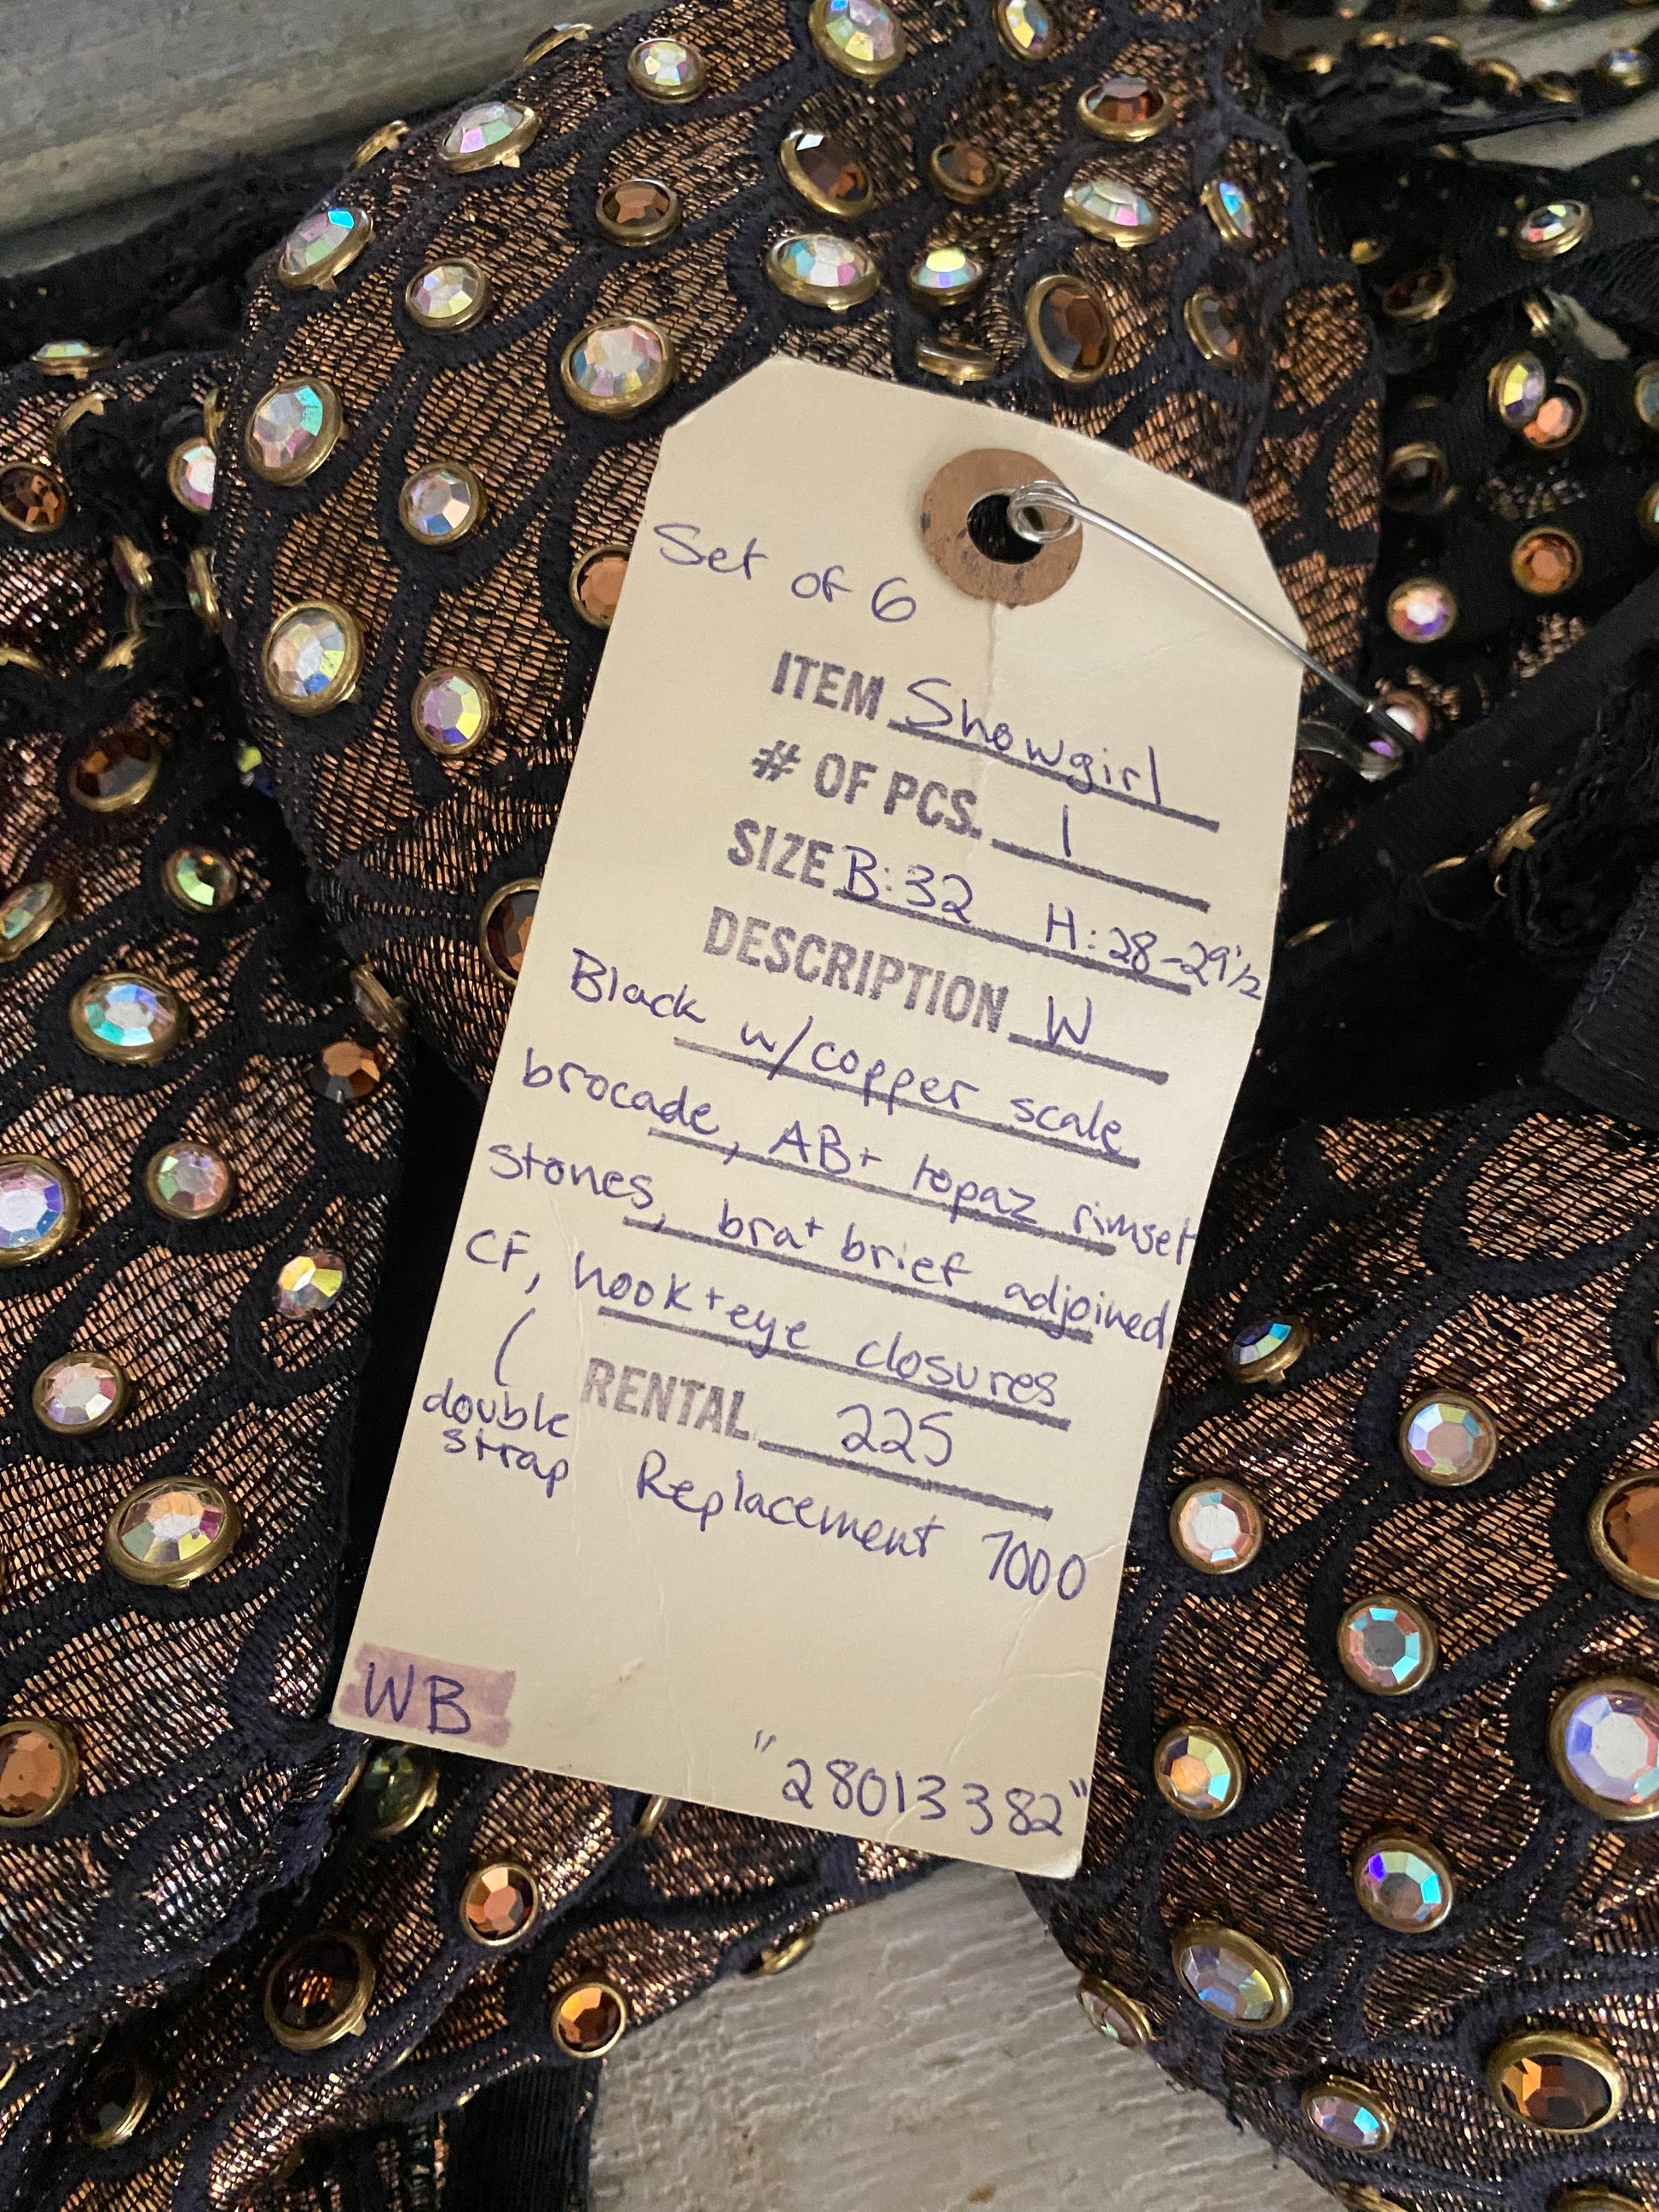 Set of 6
ITEM Showgirl
# OF PCS. 1
SIZE B:32 H:28-29 1/2
DESCRIPTION W
Black w/copper scale
brocade, AB+ topaz rimset
stones, bra+ brief adjoined
CF, hook+eye closures
(
double
strap
RENTAL 225
Replacement 7000
WB
"28013382"